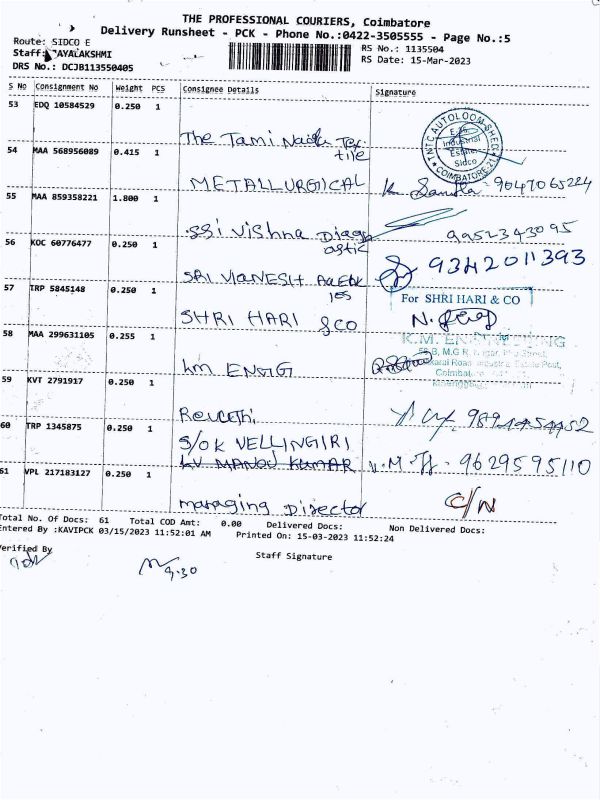 THE PROFESSIONAL COURIERS, Coimbatore
Delivery Runsheet - PCK - Phone No.:0422-3505555 - Page No.:5
Route: SIDCO E
RS No.: 1135504
Staff: AYALAKSHMI
RS Date: 15-Mar-2023
DRS No.: DCJB113550405
S No Consignment No Weight PCS Consignee Details Signature
53 EDQ 10584529 0.250 1
The Tami Nadu Tex
tile
TNTC AUTOLOOM SHED
E-26
Industrial
Estate
Sidco
COIMBATORE-21
54 MAA 568956089 0.415 1
METALLURGICAL 9047065224
55 MAA 859358221 1.800 1
SSi Vishna Diagn
ostic
9952343095
56 KOC 60776477 0.250 1
SRI VIGNESH AGENC
ies
9342011393
57 TRP 5845148 0.250 1
SHRI HARI & CO
For SHRI HARI & CO
58 MAA 299631105 0.255 1
km ENGG
K.M. ENGINEERING
59 KVT 2791917 0.250 1
Revathi
60 TRP 1345875 0.250 1
S/O K VELLINGIRI
LV MANOJ KUMAR 9629595110
61 VPL 217183127 0.250 1
managing Director C/N
Total No. Of Docs: 61 Total COD Amt: 0.00 Delivered Docs: Non Delivered Docs:
Entered By :KAVIPCK 03/15/2023 11:52:01 AM Printed On: 15-03-2023 11:52:24
Verified By
Staff Signature
9.30